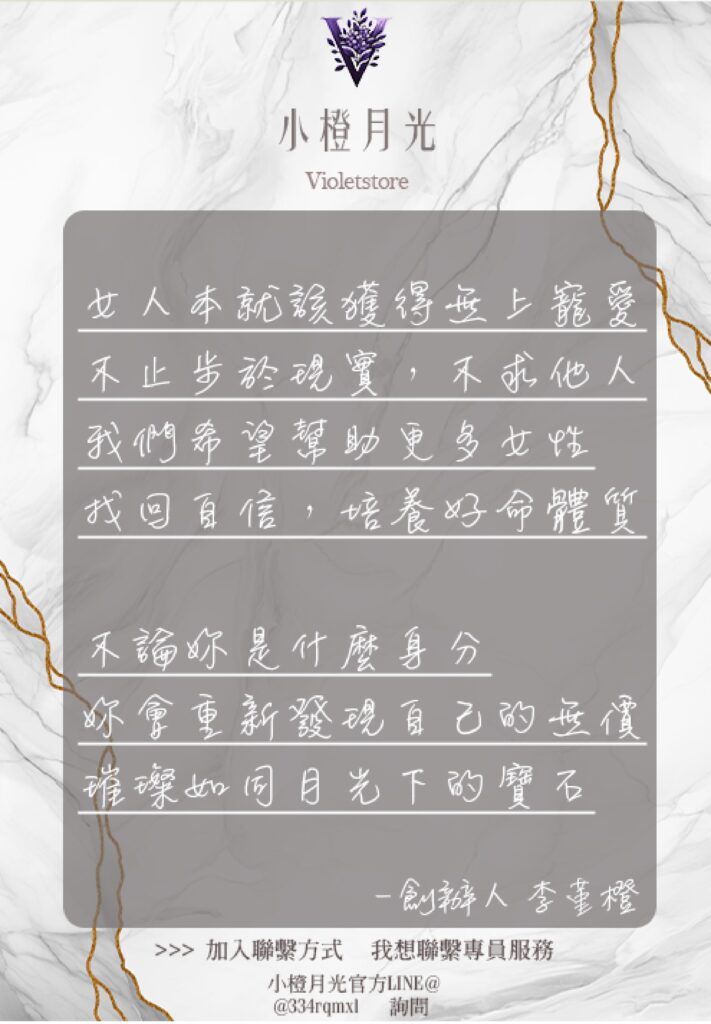 小橙月光
Violetstore
女人本就該獲得無上寵愛
不止步於現實，不求他人
我們希望幫助更多女性
找回自信，培養好命體質
不論妳是什麼身分
妳會重新發現自己的無價
璀璨如同月光下的寶石
–創辦人 李堇橙
>>> 加入聯繫方式 我想聯繫專員服務
小橙月光官方LINE@
@334rqmxl 詢問